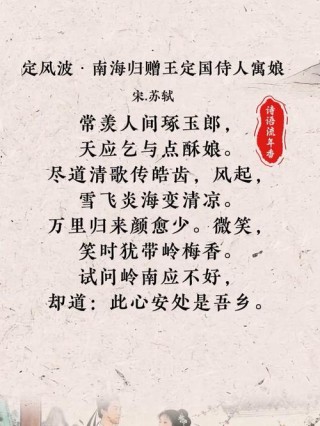 定风波·南海归赠王定国侍人寓娘
宋.苏轼
常羡人间琢玉郎，
天应乞与点酥娘。
尽道清歌传皓齿，风起，
雪飞炎海变清凉。
万里归来颜愈少。微笑，
笑时犹带岭梅香。
试问岭南应不好，
却道：此心安处是吾乡。
诗语流年香